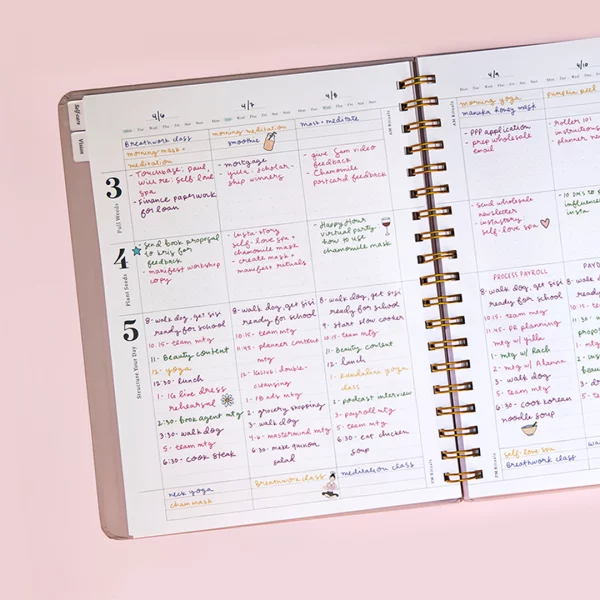 Self Care
Vision
4/6
4/7
4/8
Breathwork class
morning mask +
meditation
morning meditation
smoothie
mask + meditate
AM Rituals
3
Pull Weeds
- Touchbase: Paul,
will re: self love
spa
- finance paperwork
for loan
- mortgage
- yilla: scholar-
ship winners
- give Sam video
feedback
- Chamomile
postcard feedback
4
Plant Seeds
Send book proposal
to kris for
feedback
- manifest workshop
copy
- insta-story
self-love spa +
chamomile mask
- create mask +
manifest rituals
- Happy Hour
virtual party
how to use
chamomile mask
5
Structure Your Day
8- walk dog, get sisi
ready for school
10:15- team mtg
11- Beauty content
12- yoga
12:30- lunch
1- IG live dress
rehearsal
2:30- book agent mtg
3:30- walk dog
5- team mtg
6:30- cook steak
8- walk dog, get sisi
ready for school
10:15- team mtg
11:45- planner content
mtg
double-
cleansing
1- FB ads mtg
2- grocery shopping
3- walk dog
4-6- mastermind mtg
5- team mtg
6:30- make quinoa
salad
8- walk dog, get sisi
ready for school
9- start slow cooker
10:15- team mtg
11- Beauty content
12- lunch
1- kundalini yoga
class
2- podcast interview
3- payroll mtg
5- team mtg
6:30- eat chicken
soup
neck yoga
cham mask
Breathwork class
meditation class
PM Rituals
4/9
4/10
AM Rituals
morning yoga
manuka honey mask
pumpkin peel
- PPP application
- prep wholesale
email
- roller 101
instructions
- planner
- send wholesale
newsletter
- instastory
self-love spa
- 10 DMs to
insta
PROCESS PAYROLL
8- walk dog, get sisi
ready for school
10:15- team mtg
11:45- PR planning
mtg w/ yilla
1- mtg w/ Rach
2- mtg w/ Alanna
3- walk dog
5- team mtg
6:30- cook korean
noodle soup
8- walk
ready
10:15- team
PM Rituals
self-love spa
Breathwork class